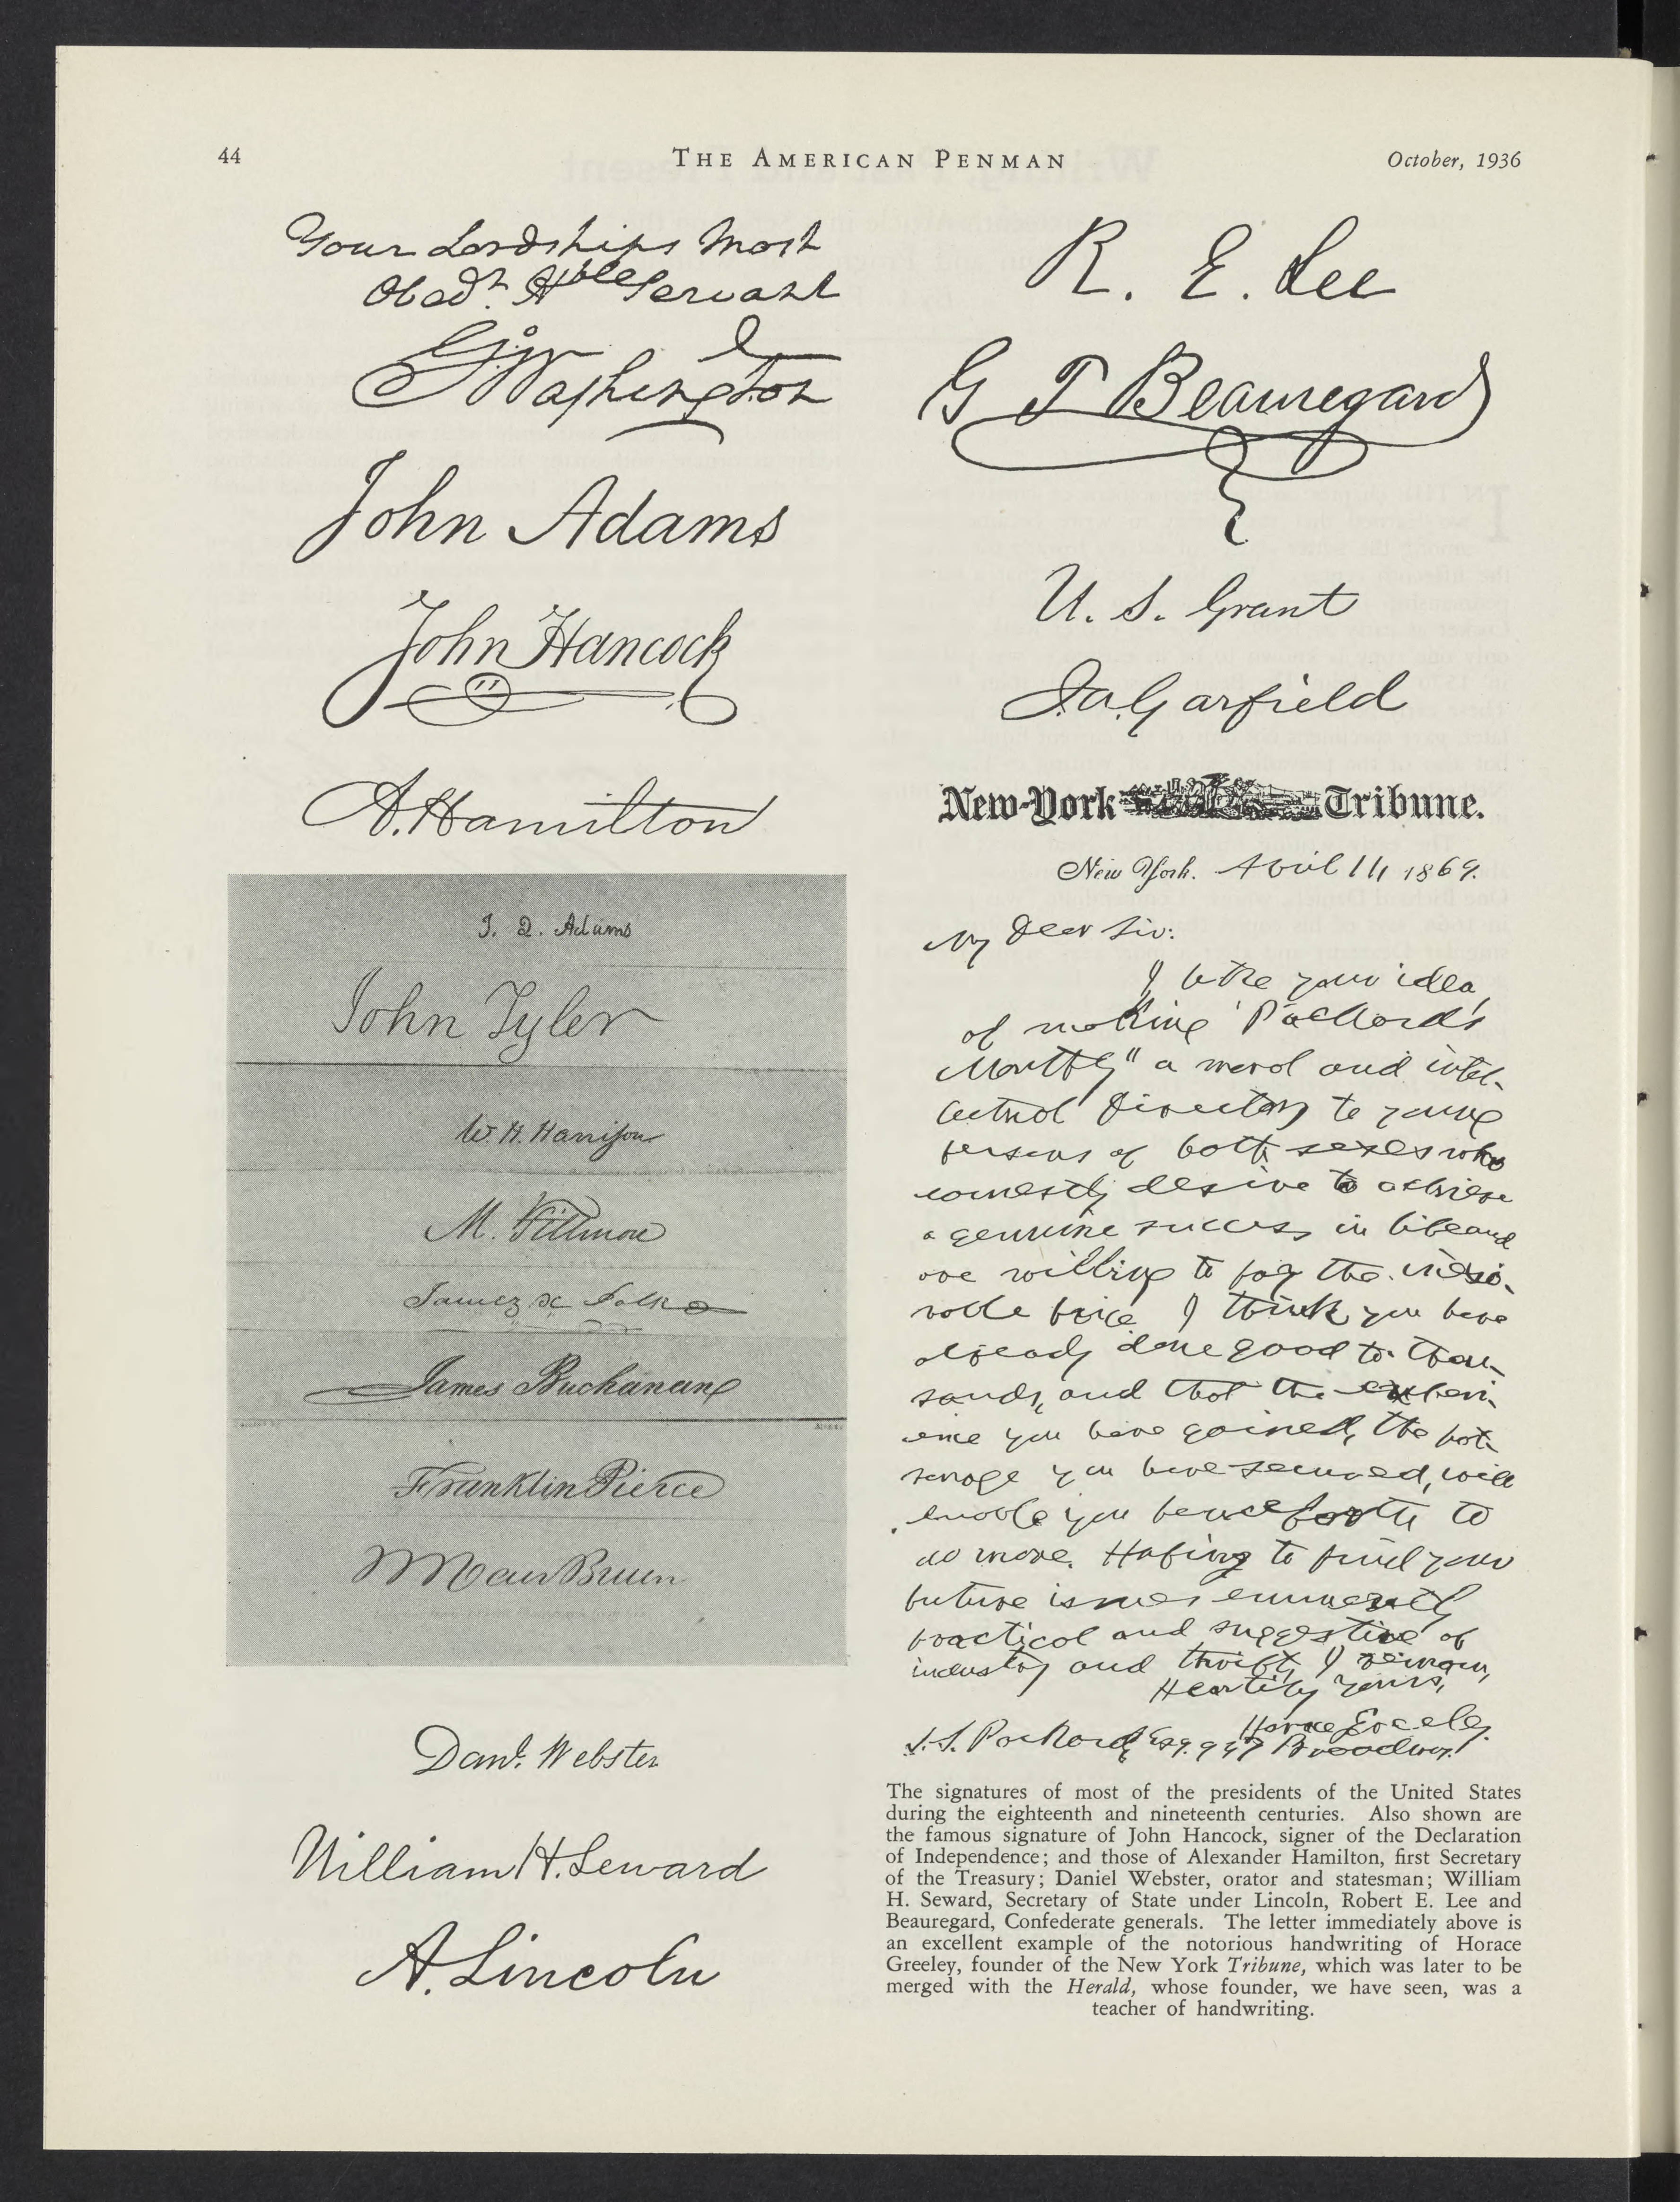 44
THE AMERICAN PENMAN
October, 1936
Your Lordships Most
Obedt. Hble Servant
Go Washington
John Adams
John Hancock
A. Hamilton
J. Q. Adams
John Tyler
W. H. Harrison
M. Fillmore
James K Polk
James Buchanan
Franklin Pierce
M Van Buren
Danl. Webster
William H. Seward
A. Lincoln
R. E. Lee
G T Beauregard
U. S. Grant
J. A. Garfield
New-York Tribune.
New York. April 1869.
My Dear Sir:
I like your idea
of making "Packard's
Monthly" a moral and intel-
lectual Directory to young
persons of both sexes who
earnestly desire to achieve
a genuine success in life and
are willing to pay the inexo-
rable price. I think you have
already done good to thou-
sands, and that the experi-
ence you have gained, the pat-
ronage you have secured, will
enable you henceforth to
do more. Hoping to find your
future issues eminently
practical and suggestive of
industry and thrift, I remain,
Heartily yours,
Horace Greeley.
S. S. Packard, Esq. 937 Broadway.
The signatures of most of the presidents of the United States
during the eighteenth and nineteenth centuries. Also shown are
the famous signature of John Hancock, signer of the Declaration
of Independence; and those of Alexander Hamilton, first Secretary
of the Treasury; Daniel Webster, orator and statesman; William
H. Seward, Secretary of State under Lincoln, Robert E. Lee and
Beauregard, Confederate generals. The letter immediately above is
an excellent example of the notorious handwriting of Horace
Greeley, founder of the New York Tribune, which was later to be
merged with the Herald, whose founder, we have seen, was a
teacher of handwriting.